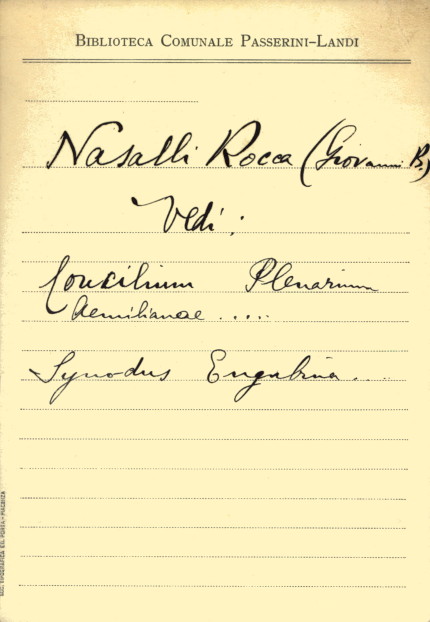 BIBLIOTECA COMUNALE PASSERINI-LANDI
Nasalli Rocca (Giovanni B.)
Vedi:
Concilium Plenarium
Aemilianae .....
Synodus Eugubina ...
SOC. TIPOGRAFICA ED. PORTA - PIACENZA